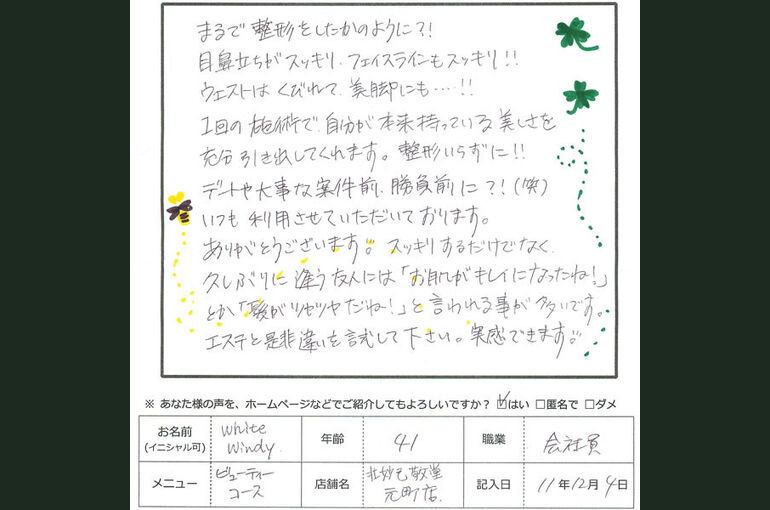 まるで整形をしたかのように?!
目鼻立ちがスッキリ、フェイスラインもスッキリ!!
ウエストはくびれて、美脚にも……!!
1回の施術で、自分が本来持っている美しさを
充分引き出してくれます。整形いらずに!!
デートや大事な案件前、勝負前に?!(笑)
いつも利用させていただいております。
ありがとうございます。スッキリするだけでなく、
久しぶりに逢う友人には「お肌がキレイになったね!」
とか「髪がツヤツヤだね!」と言われる事が多いです。
エステと是非違いを試して下さい。実感できます。
※ あなた様の声を、ホームページなどでご紹介してもよろしいですか? ☑はい □匿名で □ダメ
お名前 (イニシャル可) white windy. 年齢 41 職業 会社員
メニュー ビューティーコース 店舗名 元町店. 記入日 11年12月4日